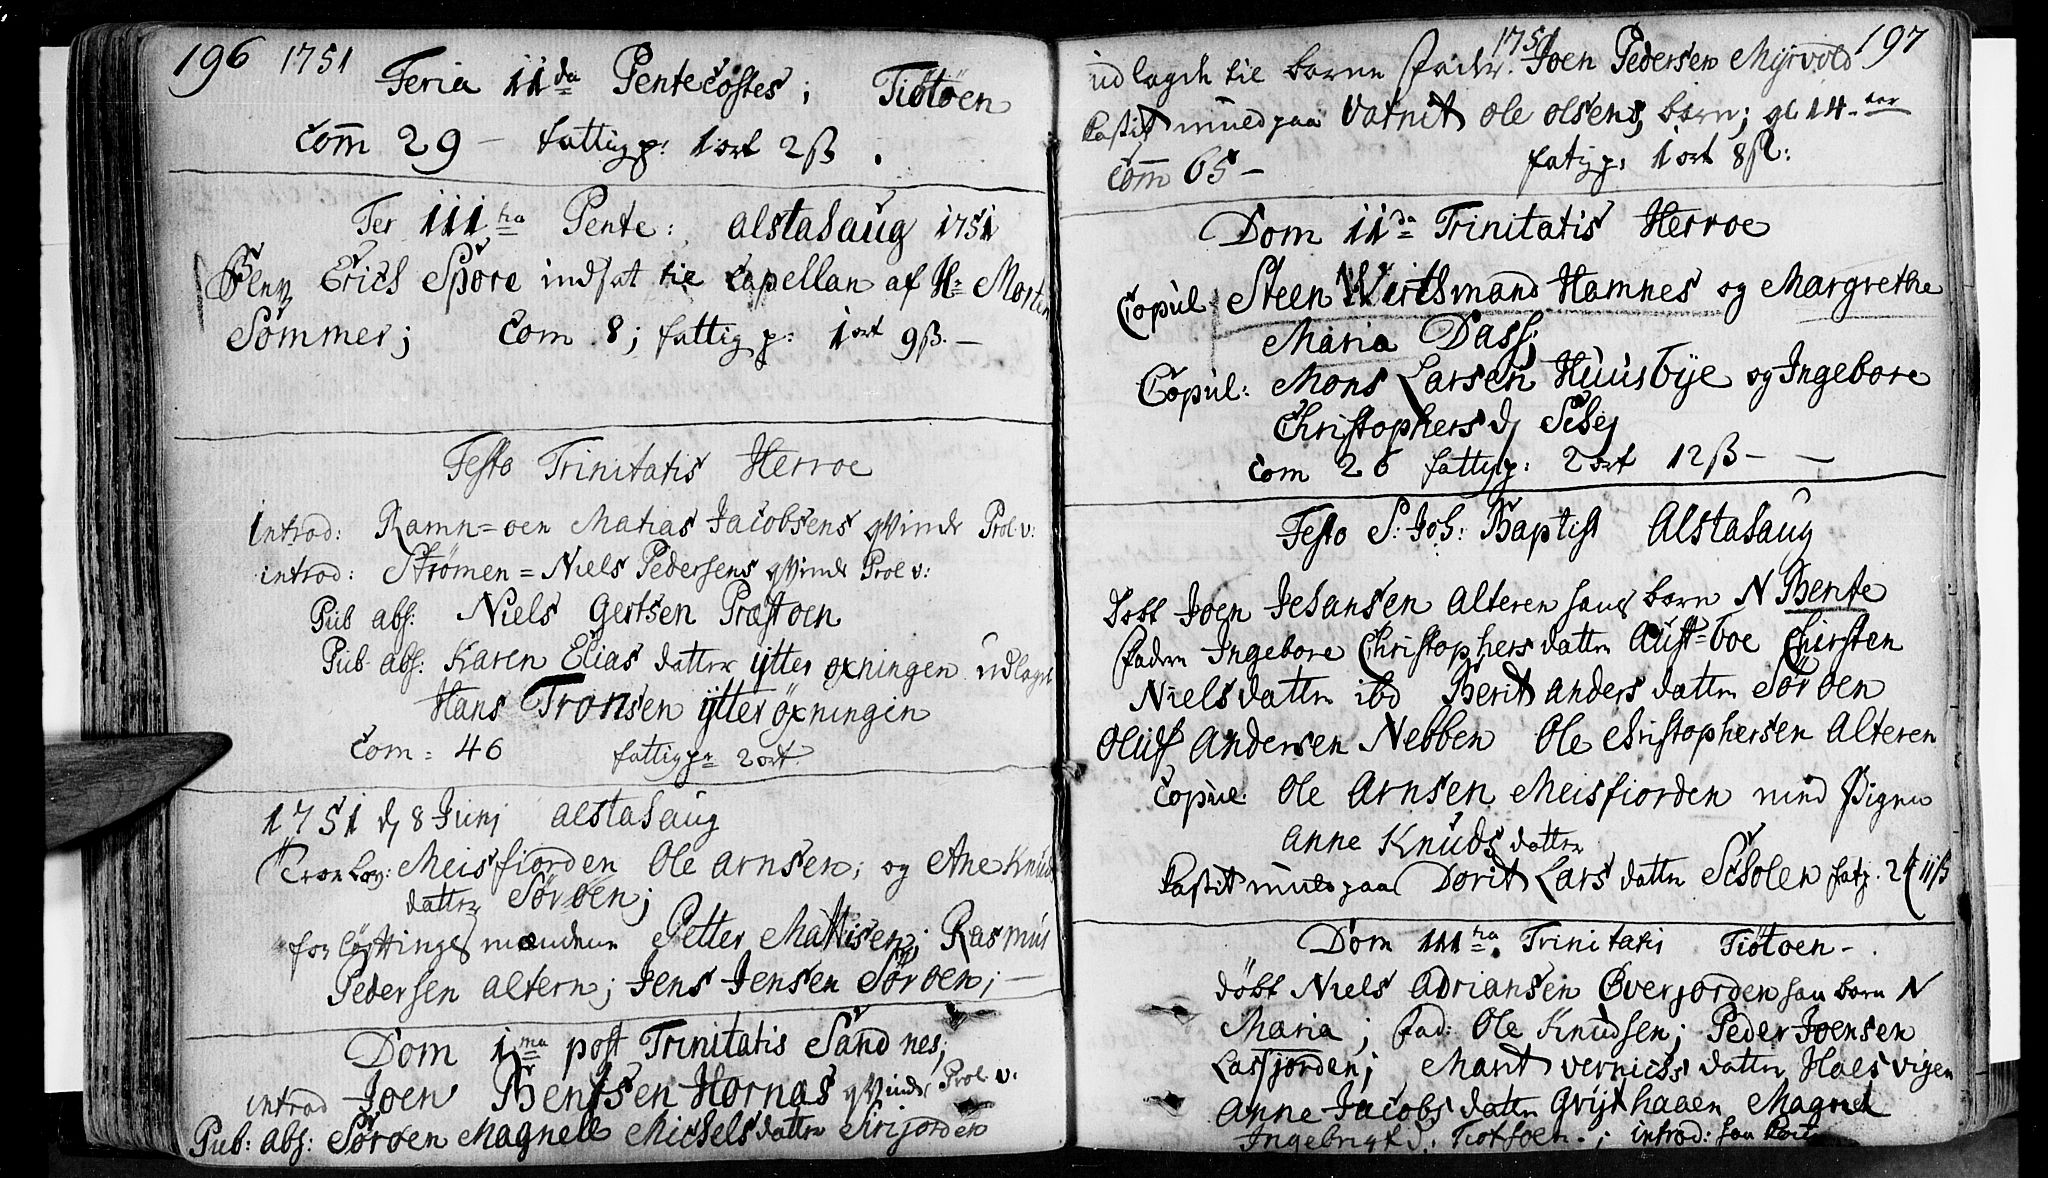 196 1751
Feria 11da Pentecostes; Tiötöen
Com 29 – fattigp: 1 ort 2ß.
Fer 111tia Pente: alstahaug 1751
Erich Spore indsat til Capellan af Hr Morten
Sommer; Com 8; fattigp: 1 ort 9ß. –
Festo Trinitatis Herroe
introd: Ramn=oen Matias Jacobsens qvinde Prol. v:
introd: Strømen = Niels Pedersens qvinde Prol v:
Pub abs: Niels Gertsen Præstoen
Pub abs: Karen Elias datter ytter oxningen udlagde
Hans Tronsen ytter öxningen
Com = 46 fattigp: 2 ort
1751 d 8 Junj alstahaug
Trolov: Meisfiorden Ole arnsen; og Ane Knuds
datter Sørøen;
forløftings mændene Petter Mattisen; Rasmus
Pedersen altern; Jens Jensen Sørøen; –
Dom 1ma post Trinitatis Sandnes;
introd Joen Bentsen Hornæs qvinde Prol v:
Pub: abs: Søroen Magnell Michelsdatter
197
1751
udlagde til barne fader. Joen Pedersen Myrvold
Kastit muld paa Vatnit Ole Olsens barn; gl 14.
Com 65 – fatigp: 1 ort 8ß:
Dom 11da Trinitatis Herroe
Copul Steen Wirthmand Hamnes og Margrethe
Maria Dass;
Copul: Mons Larsen Huusbye og Ingebore
Christophers d
com 26 fattigp: 2 ort 12ß –
Festo S: Joh: Baptist Alstahaug
Döbt Joen Johansen Alteren hans barn N Bente
fadere Ingebore Christophers datter Austboe Chirsten
Nielsdatter ibd Berit anders datter Søroen
Oluf Andersen Nebben Ole Christophersen Alteren
Copul: Ole Arnsen Meisfiorden med Pigen
Anne Knuds datter
Kastit muld paa Dorit Lars datter fatp. 2 11ß
Dom 111tia. Trinitatis Tiötoen –.
döbt Niels Adriansen Øverjorden hans barn N
Maria; fad: Ole Knudsen; Peder Joensen
Marit datter
Anne Jacobs datter Magnel
Ingebrigt d. Tiøtøen.; introd: hans